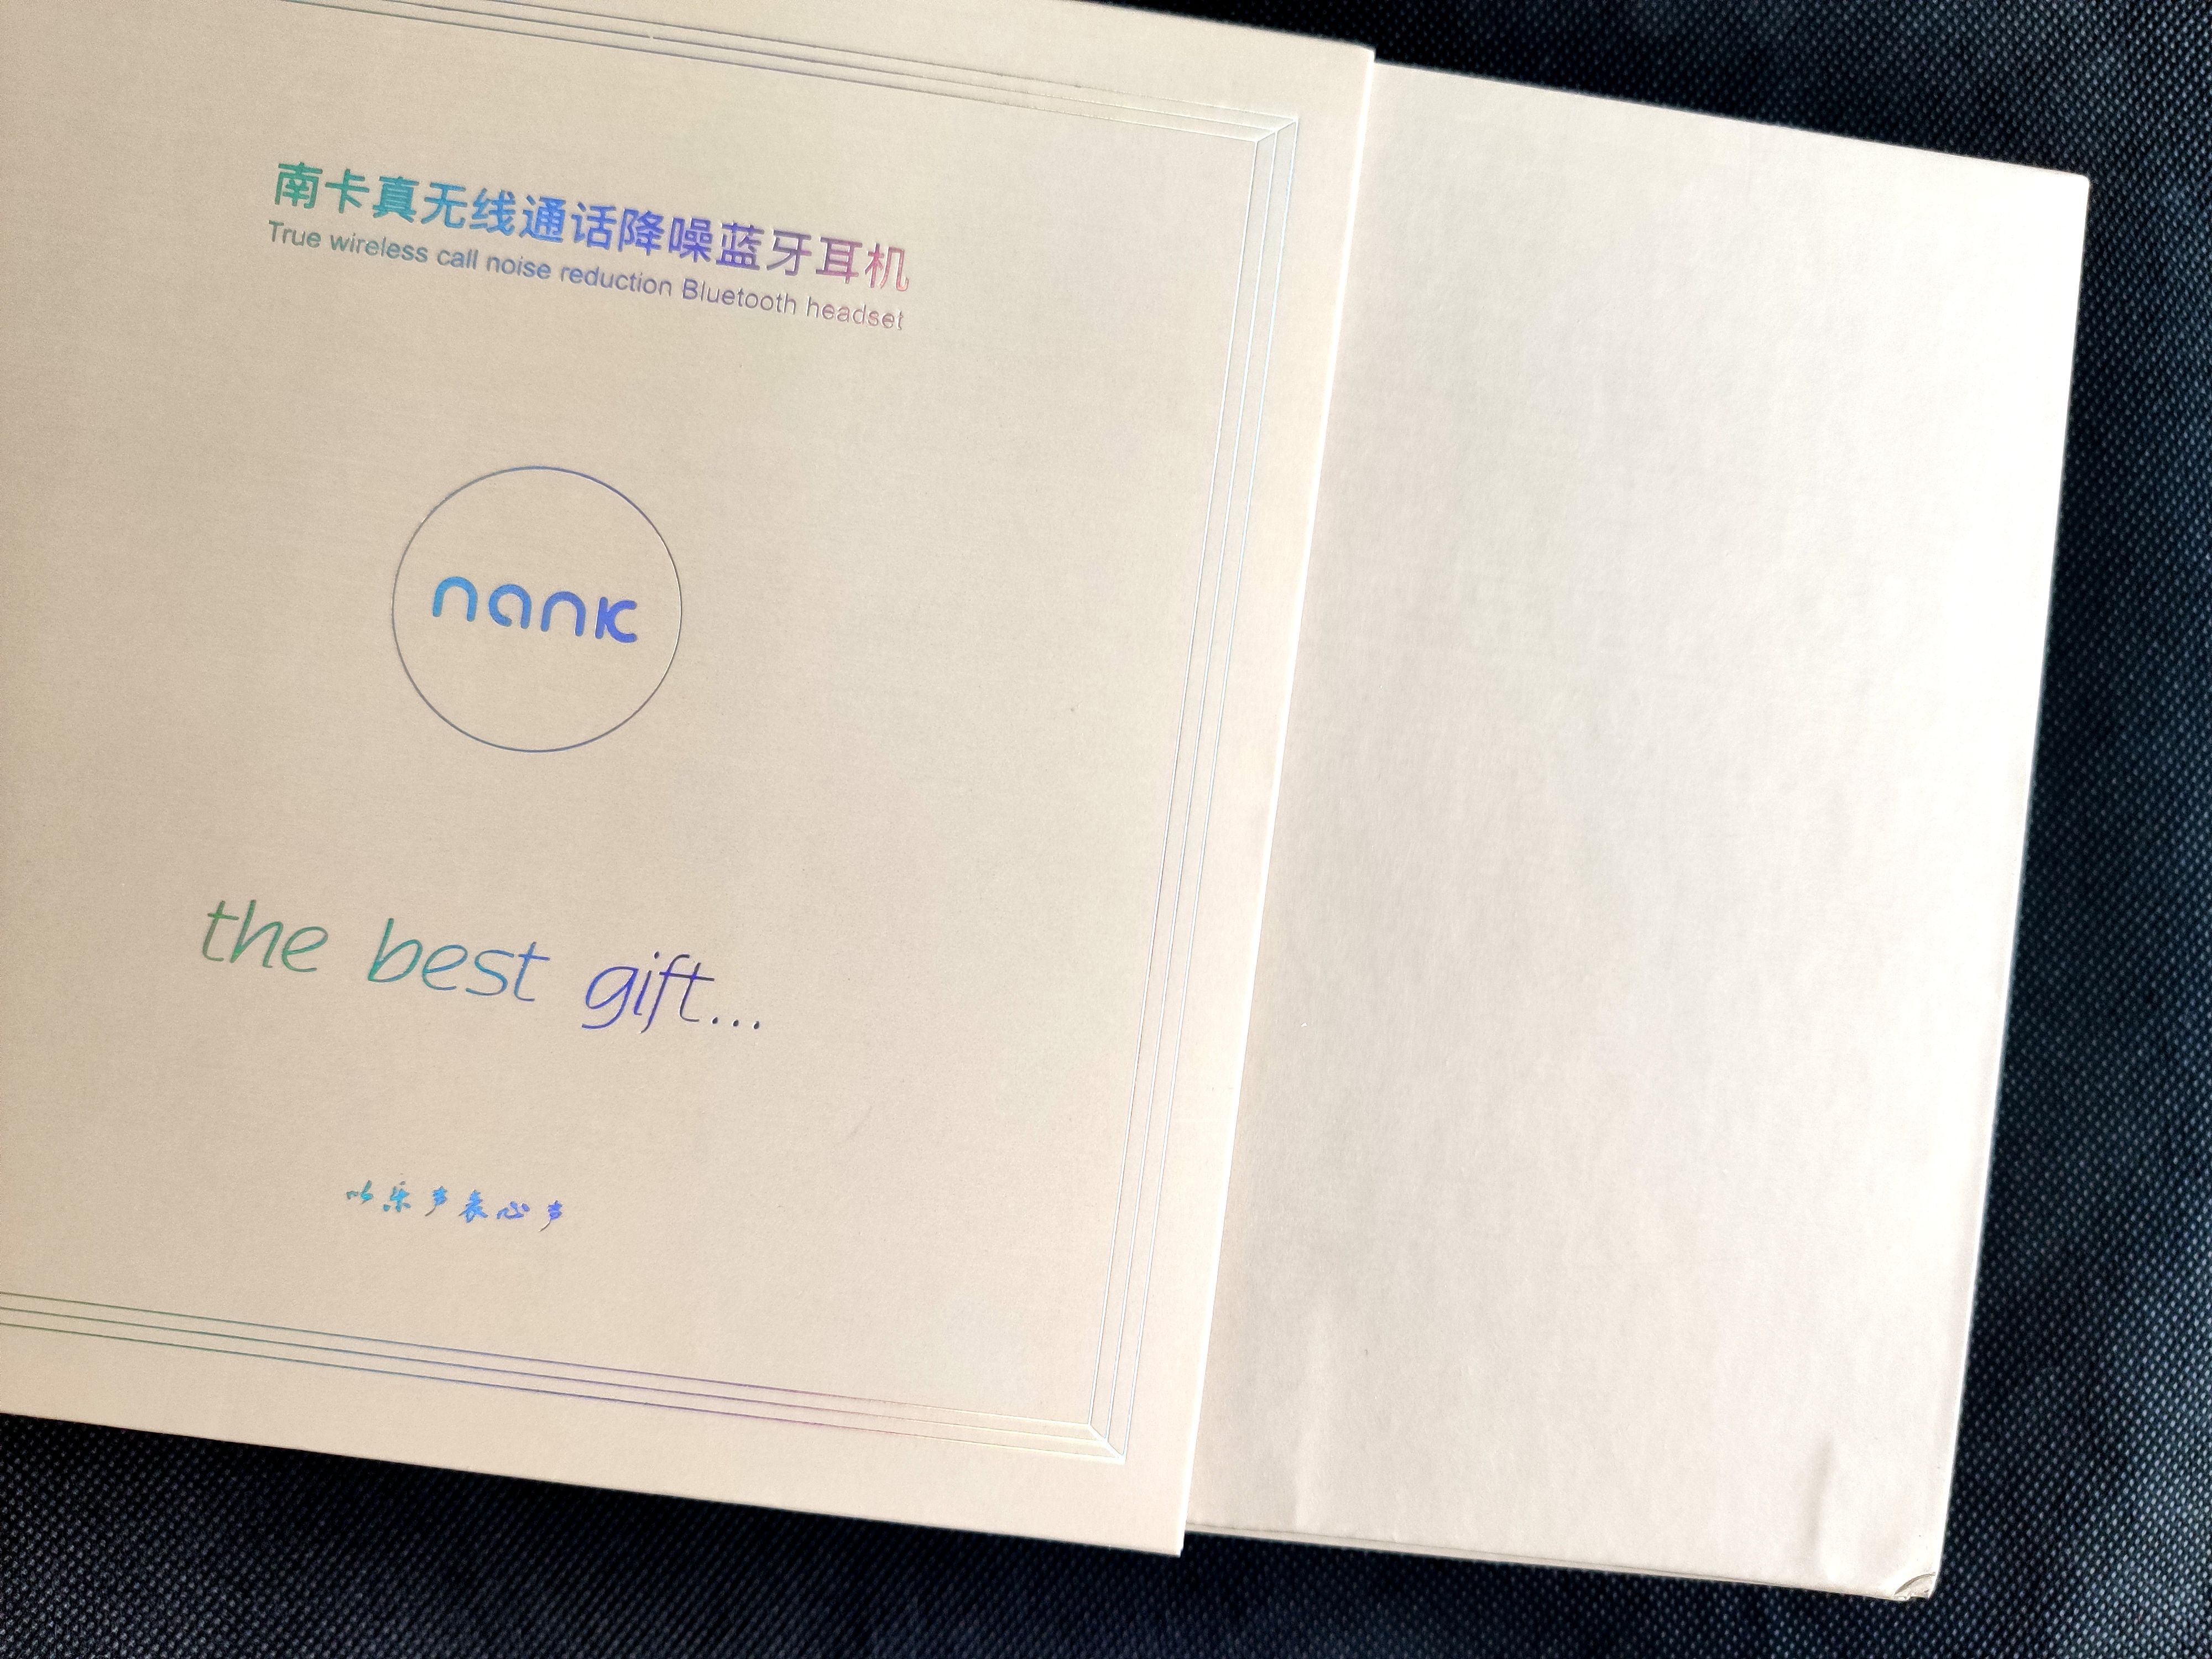 南卡真无线通话降噪蓝牙耳机
True wireless call noise reduction Bluetooth headset
nank
the best gift...
以乐声表心声